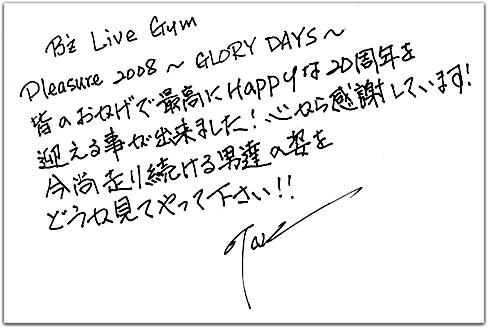 B'z Live Gym
Pleasure 2008 ~ GLORY DAYS ~
皆のおかげで最高にHappyな20周年を
迎える事が出来ました！心から感謝しています！
今尚走り続ける男達の姿を
どうか見てやって下さい!!
Tak